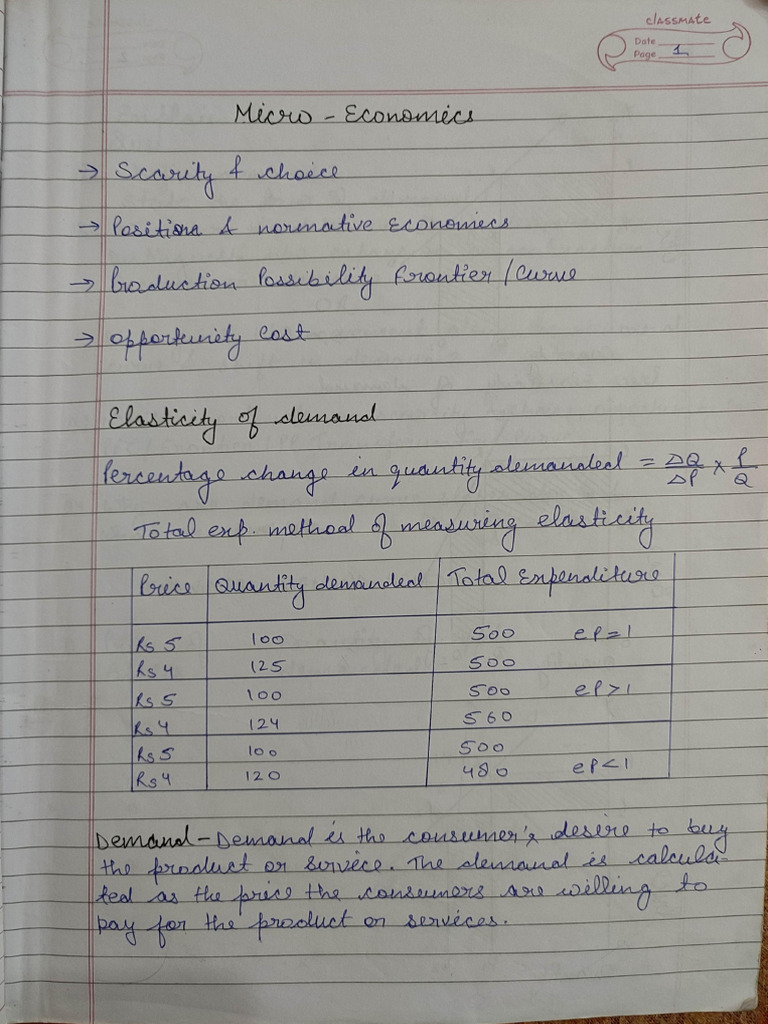 classmate
Date
Page 1
Micro - Economics
→ Scarity & choice
→ Positione & normative Economics
→ Production Possibility Frontier / Curve
→ opportunity Cost
Elasticity of demand
Percentage change in quantity demanded = ΔQ/ΔP × P/Q
Total exp. method of measuring elasticity
Price Quantity demanded Total Expenditure
Rs 5 100 500 eP = 1
Rs 4 125 500
Rs 5 100 500 eP > 1
Rs 4 124 560
Rs 5 100 500
Rs 4 120 480 eP < 1
Demand - Demand is the consumer's desire to buy
the product or service. The demand is calcula-
ted as the price the consumers are willing to
pay for the product or services.